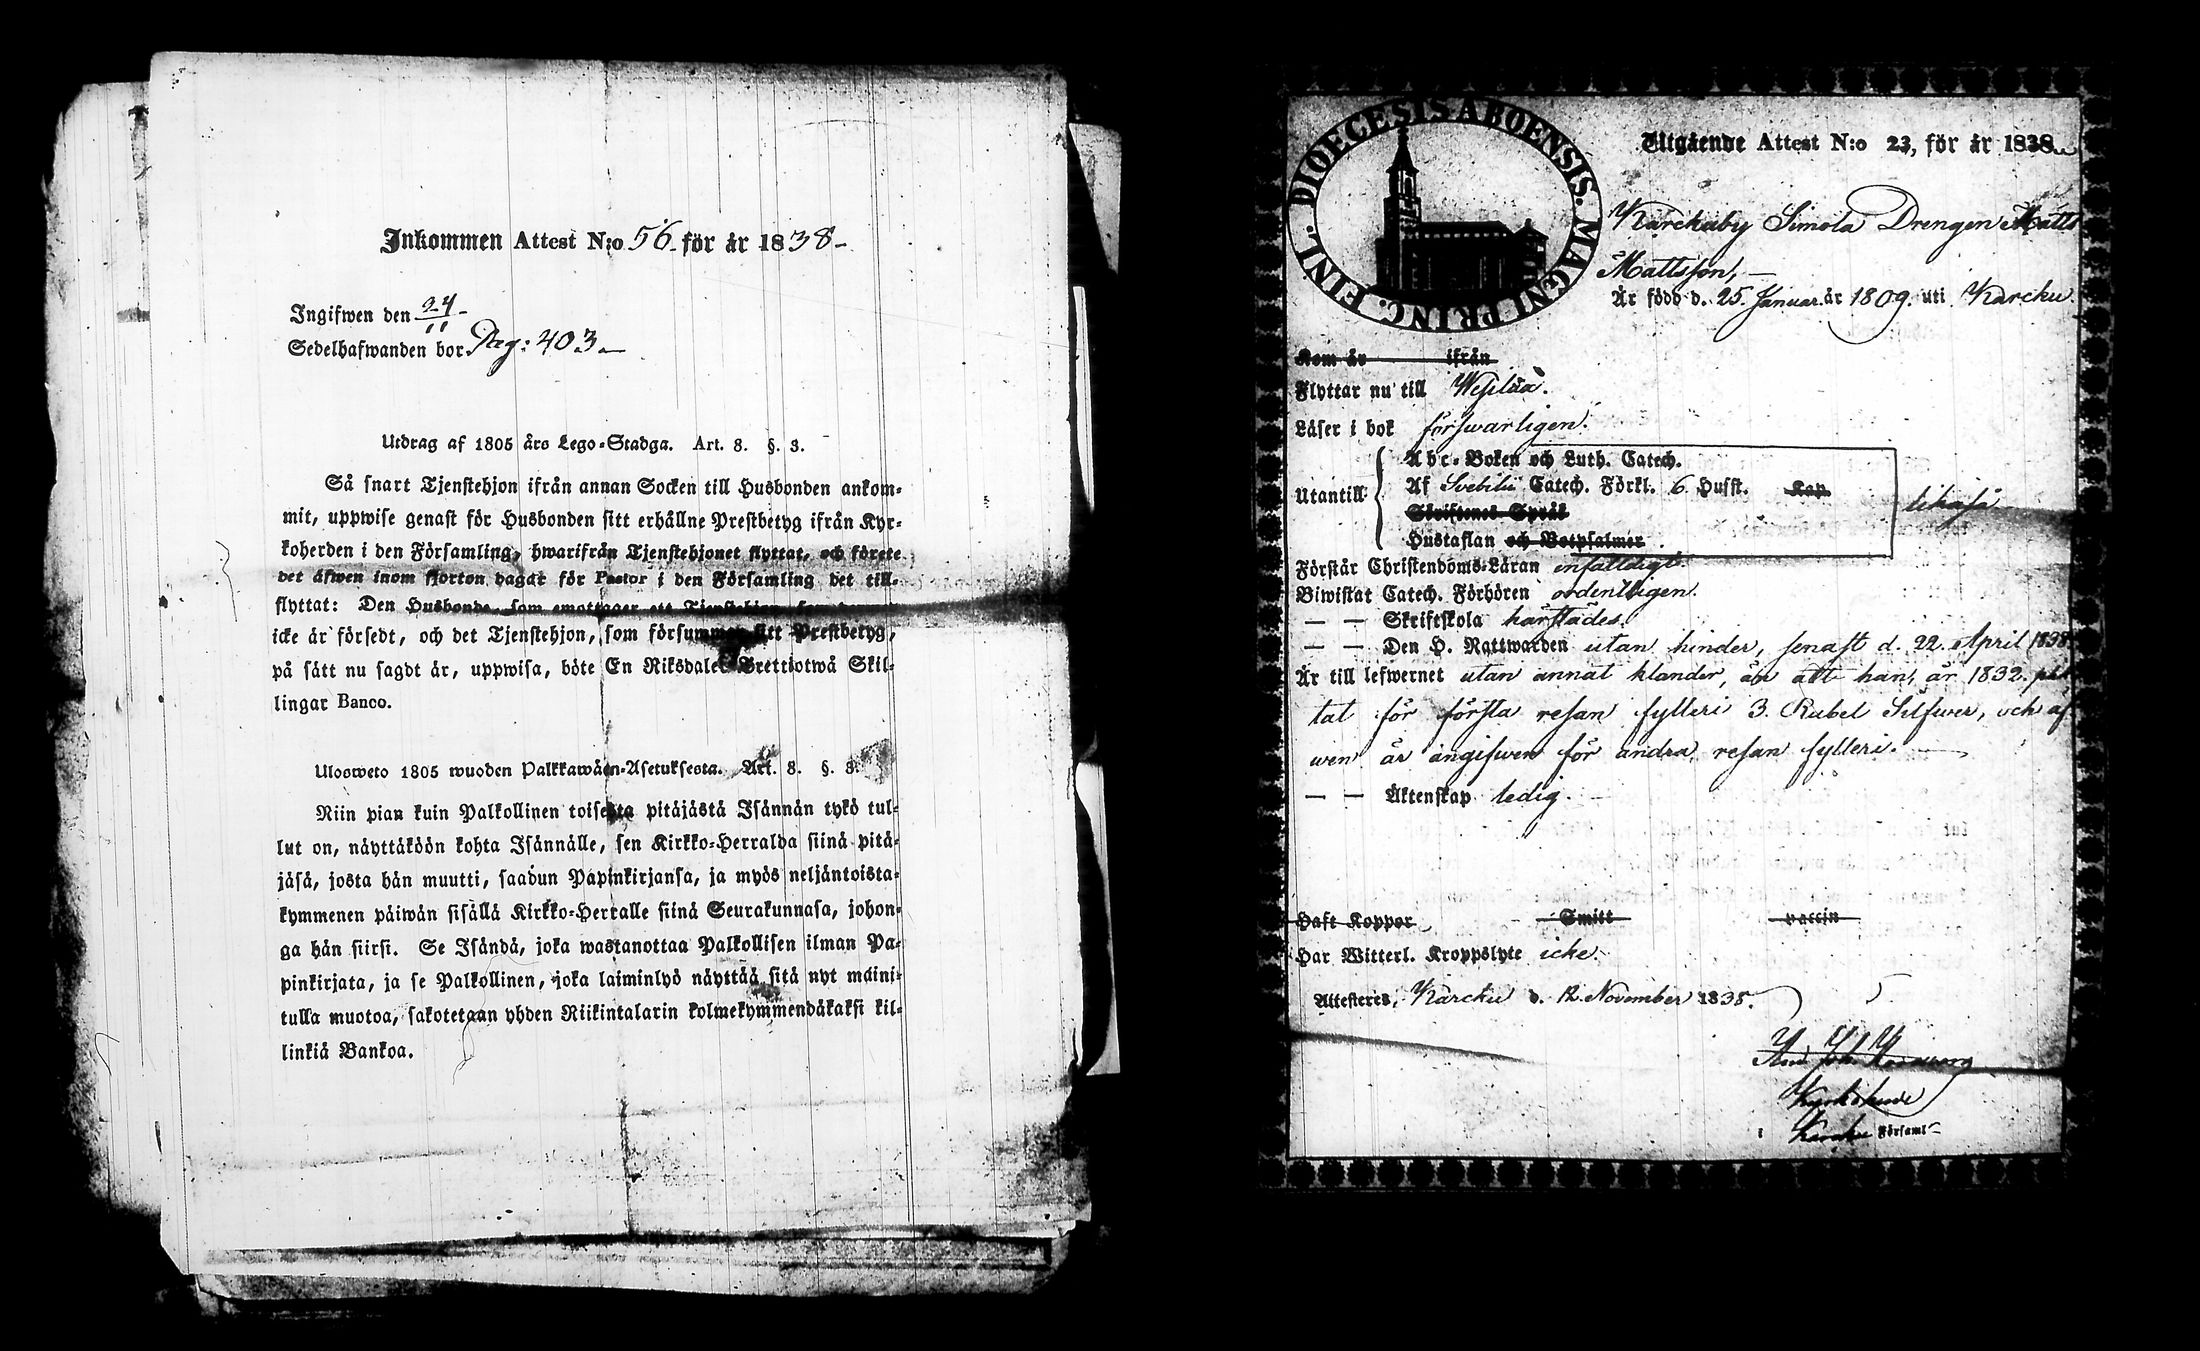 Inkommen Attest N:o 56 för år 1838
Ingifwen den 24/11
Sedelhafwanden bor Pag: 403
Utdrag af 1805 års Lego-Stadga. Art. 8. §. 3.
Så snart Tjenstehjon ifrån annan Socken till Husbonden ankom-
mit, uppwise genast för Husbonden sitt erhållne Prestbetyg ifrån Kyr-
koherden i den Församling, hwarifrån Tjenstehjonet flyttat, och förete
det äfwen inom fjorton dagar för Pastor i den Församling det till-
flyttat: Den Husbonde, som emottager ett Tjenstehjon, som
icke är försedt, och det Tjenstehjon, som försummar sitt Prestbetyg,
på sätt nu sagdt är, uppwisa, böte En Riksdaler Trettiotwå Skil-
lingar Banco.
Ulosweto 1805 wuoden Palkkawäen-Asetuksesta. Art. 8. §. 3.
Niin pian kuin Palkollinen toisesta pitäjästä Isännän tykö tul-
lut on, näyttäköön kohta Isännälle, sen Kirkko-Herralda siinä pitä-
jäsä, josta hän muutti, saadun Papinkirjansa, ja myös neljäntoista-
kymmenen päiwän sisällä Kirkko-Herralle siinä Seurakunnasa, johon-
ga hän siirsi. Se Isändä, joka wastanottaa Palkollisen ilman Pa-
pinkirjata, ja se Palkollinen, joka laiminlyö näyttää sitä nyt maini-
tulla muotoa, sakotetaan yhden Riikintalarin kolmekymmendäkaksi kil-
linkiä Bankoa.
DIOECESIS ABOENSIS. MAGNI PRINC. FINL.
Utgående Attest N:o 23, för år 1838
Karckuby Simola Drengen Matts
Mattsson,
Är född d. 25 Januar. år 1809. uti Karcku.
Kom år ifrån
Flyttar nu till Wesilax.
Läser i bok förswarligen.
Utantill
Abc-Boken och Luth. Catech.
Af Svebilii Catech. Förkl. 6 Hufst. Kap
Skriftenes Språk
Hustaflan och Botpsalmer
likaså
Förstår Christendoms-Läran enfaldigt.
Biwistat Catech. Förhören ordentligen.
— — Skriftskola härstädes.
— — Den H. Nattwarden utan hinder, senast d. 22. April 1838
Är till lefwernet utan annat klander, än att han, år 1832. plik
tat för första resan fylleri 3. Rubel Silfwer, och äf
wen är angifwen för andra resan fylleri.
— — Äktenskap ledig.
Haft Koppor Smitt vaccin
Har Witterl. Kroppslyte icke.
Attesteres, Karcku d. 12. November 1838.
Kyrkoherde
i Karcku Församl